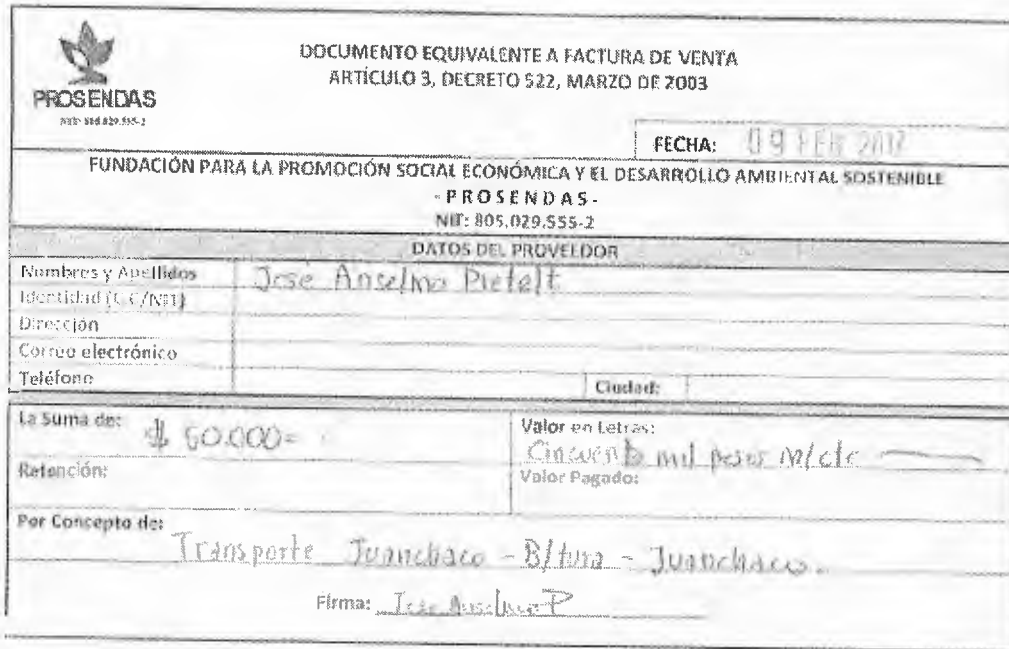 PROSENDAS
DOCUMENTO EQUIVALENTE A FACTURA DE VENTA
ARTÍCULO 3, DECRETO 522, MARZO DE 2003
FECHA: 09 FEB
FUNDACIÓN PARA LA PROMOCIÓN SOCIAL ECONÓMICA Y EL DESARROLLO AMBIENTAL SOSTENIBLE
- PROSENDAS -
NIT: 805.029.555-2
DATOS DEL PROVEEDOR
Nombres y Apellidos José Anselmo
Identidad (C.C/NIT)
Dirección
Correo electrónico
Teléfono Ciudad:
La Suma de: $ 50.000= Valor en Letras:
Cincuenta mil pesos M/cte
Retención: Valor Pagado:
Por Concepto de:
Transporte Juanchaco - B/tura - Juanchaco.
Firma: Jose Anselmo P